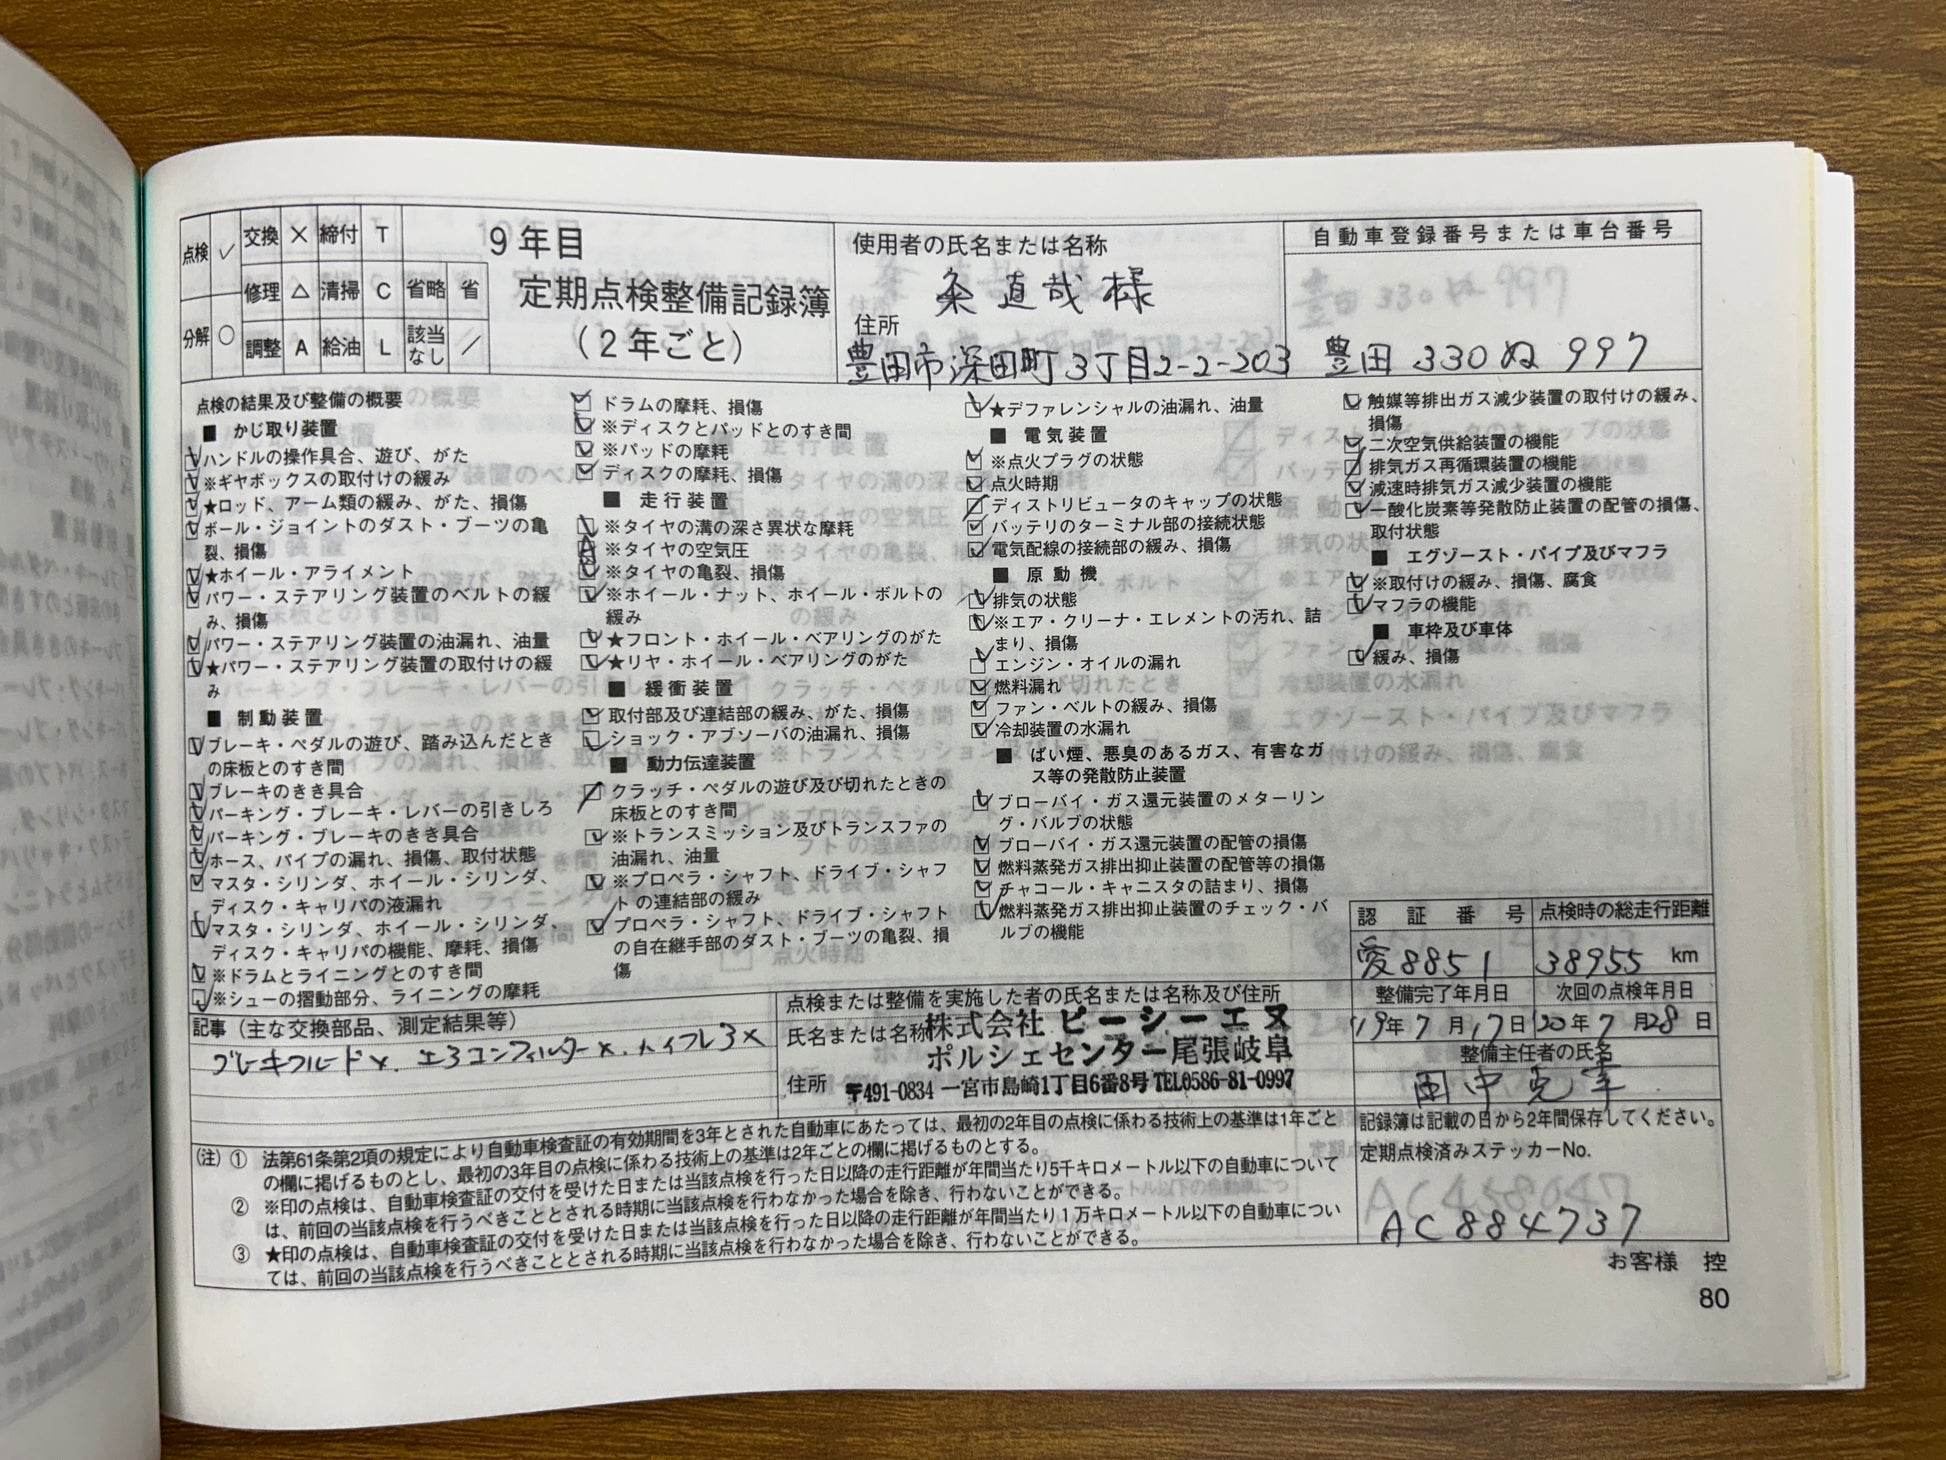 点検 ✓ 交換 × 締付 T
修理 △ 清掃 C 省略 省
分解 ○ 調整 A 給油 L 該当なし ／
9年目
定期点検整備記録簿
（2年ごと）
使用者の氏名または名称
粂 直哉 様
住所
豊田市深田町3丁目2-2-203
自動車登録番号または車台番号
豊田 330 ぬ 997
点検の結果及び整備の概要
■ かじ取り装置
ハンドルの操作具合、遊び、がた
※ギヤボックスの取付けの緩み
★ロッド、アーム類の緩み、がた、損傷
ボール・ジョイントのダスト・ブーツの亀
裂、損傷
★ホイール・アライメント
パワー・ステアリング装置のベルトの緩
み、損傷
パワー・ステアリング装置の油漏れ、油量
★パワー・ステアリング装置の取付けの緩
み
■ 制動装置
ブレーキ・ペダルの遊び、踏み込んだとき
の床板とのすき間
ブレーキのきき具合
パーキング・ブレーキ・レバーの引きしろ
パーキング・ブレーキのきき具合
ホース、パイプの漏れ、損傷、取付状態
マスタ・シリンダ、ホイール・シリンダ、
ディスク・キャリパの液漏れ
マスタ・シリンダ、ホイール・シリンダ、
ディスク・キャリパの機能、摩耗、損傷
※ドラムとライニングとのすき間
※シューの摺動部分、ライニングの摩耗
ドラムの摩耗、損傷
※ディスクとパッドとのすき間
※パッドの摩耗
ディスクの摩耗、損傷
■ 走行装置
※タイヤの溝の深さ異状な摩耗
※タイヤの空気圧
※タイヤの亀裂、損傷
※ホイール・ナット、ホイール・ボルトの
緩み
★フロント・ホイール・ベアリングのがた
★リヤ・ホイール・ベアリングのがた
■ 緩衝装置
取付部及び連結部の緩み、がた、損傷
ショック・アブソーバの油漏れ、損傷
■ 動力伝達装置
クラッチ・ペダルの遊び及び切れたときの
床板とのすき間
※トランスミッション及びトランスファの
油漏れ、油量
※プロペラ・シャフト、ドライブ・シャフ
トの連結部の緩み
プロペラ・シャフト、ドライブ・シャフト
の自在継手部のダスト・ブーツの亀裂、損
傷
★デファレンシャルの油漏れ、油量
■ 電気装置
※点火プラグの状態
点火時期
ディストリビュータのキャップの状態
バッテリのターミナル部の接続状態
電気配線の接続部の緩み、損傷
■ 原動機
排気の状態
※エア・クリーナ・エレメントの汚れ、詰
まり、損傷
エンジン・オイルの漏れ
燃料漏れ
ファン・ベルトの緩み、損傷
冷却装置の水漏れ
■ ばい煙、悪臭のあるガス、有害なガ
ス等の発散防止装置
ブローバイ・ガス還元装置のメターリン
グ・バルブの状態
ブローバイ・ガス還元装置の配管の損傷
燃料蒸発ガス排出抑止装置の配管等の損傷
チャコール・キャニスタの詰まり、損傷
燃料蒸発ガス排出抑止装置のチェック・バ
ルブの機能
触媒等排出ガス減少装置の取付けの緩み、
損傷
二次空気供給装置の機能
排気ガス再循環装置の機能
減速時排気ガス減少装置の機能
一酸化炭素等発散防止装置の配管の損傷、
取付状態
■ エグゾースト・パイプ及びマフラ
※取付けの緩み、損傷、腐食
マフラの機能
■ 車枠及び車体
緩み、損傷
認証番号 点検時の総走行距離
愛8851 38955 km
整備完了年月日 次回の点検年月日
19年7月17日 20年7月28日
整備主任者の氏名
田中克幸
記録簿は記載の日から2年間保存してください。
定期点検済みステッカーNo.
AC884737
記事（主な交換部品、測定結果等）
ブレーキフルード×. エアコンフィルター×. ハイフレ3×
点検または整備を実施した者の氏名または名称及び住所
氏名または名称 株式会社 ピーシーエヌ
ポルシェセンター尾張岐阜
住所 〒491-0834 一宮市島崎1丁目6番8号 TEL0586-81-0997
(注) ① 法第61条第2項の規定により自動車検査証の有効期間を3年とされた自動車にあたっては、最初の2年目の点検に係わる技術上の基準は1年ごと
の欄に掲げるものとし、最初の3年目の点検に係わる技術上の基準は2年ごとの欄に掲げるものとする。
② ※印の点検は、自動車検査証の交付を受けた日または当該点検を行った日以降の走行距離が年間当たり5千キロメートル以下の自動車について
は、前回の当該点検を行うべきこととされる時期に当該点検を行わなかった場合を除き、行わないことができる。
③ ★印の点検は、自動車検査証の交付を受けた日または当該点検を行った日以降の走行距離が年間当たり1万キロメートル以下の自動車につい
ては、前回の当該点検を行うべきこととされる時期に当該点検を行わなかった場合を除き、行わないことができる。
お客様 控
80